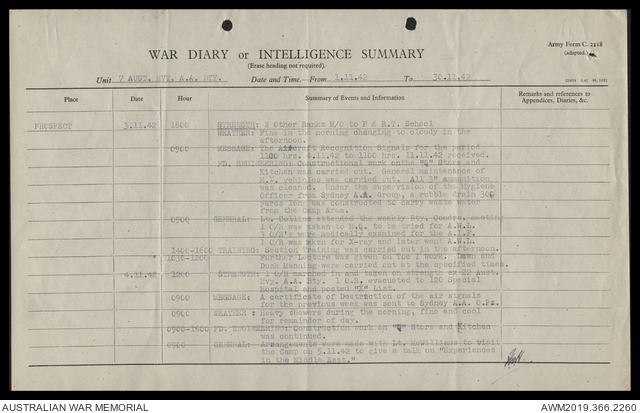 Army Form C. 2118
(adapted.)
WAR DIARY or INTELLIGENCE SUMMARY
(Erase heading not required).
Unit 7 AUST. HVY. A.A. BTY. Date and Time.—From 1.11.42 To 30.11.42
Place Date Hour Summary of Events and Information Remarks and references to Appendices, Diaries, &c.
PROSPECT 3.11.42 1800 STRENGTH: 2 Other Ranks M/O to P & R.T. School
WEATHER: Fine in the morning changing to cloudy in the
afternoon.
0900 MESSAGE: The Aircraft Recognition Signals for the period
1100 hrs. 4.11.42 to 1100 hrs. 11.11.42 received.
FD. ENGINEERING: Constructional work on the "Q" Store and
Kitchen was carried out. General maintenance of
M.T. vehicles was carried out. All 3" ammunition
was cleaned. Under the supervision of the Hygiene
Officer from Sydney A.A. Group, a rubble drain 300
yards long was constructed to carry waste water
from the Camp Area.
0900 GENERAL: Lt. Collins attended the weekly Bty. Comdrs. meeting
1 O/R was taken to H.Q. to be tried for A.W.L.
1 O/R's were medically examined for the A.I.F.
1 O/R was taken for X-ray and later went A.W.L.
1400-1600 TRAINING: Section Training was carried out in the afternoon.
1030-1200 Further Lecture was given on Loc 1 work. Dawn and
Dusk Manning were carried out at the specified times.
4.11.42 1200 STRENGTH: 1 O/R marched in and taken on strength ex 22 Aust.
Hvy. A.A. Bty. 1 O.R. evacuated to 120 Special
Hospital and posted "X" List.
0900 MESSAGE: A certificate of Destruction of the air signals
for the previous week was sent to Sydney A.A. O.Ps.
0900 WEATHER: Heavy showers during the morning, fine and cool
for remainder of day.
0900-1600 FD. ENGINEERING: Construction work on "Q" Store and Kitchen
was continued.
0900 GENERAL: Arrangements were made with Lt. McWilliams to visit
the Camp on 5.11.42 to give a talk on "Experiences
in the Middle East."
AUSTRALIAN WAR MEMORIAL AWM2019.366.2260